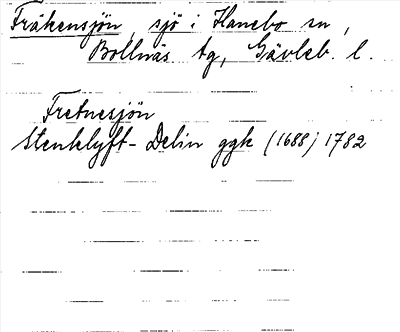 Fräkensjön, sjö i Hanebo sn,
Bollnäs tg, Gävleb. l.
Fretnesjön
Stenklyft-Delin ggk (1688) 1782